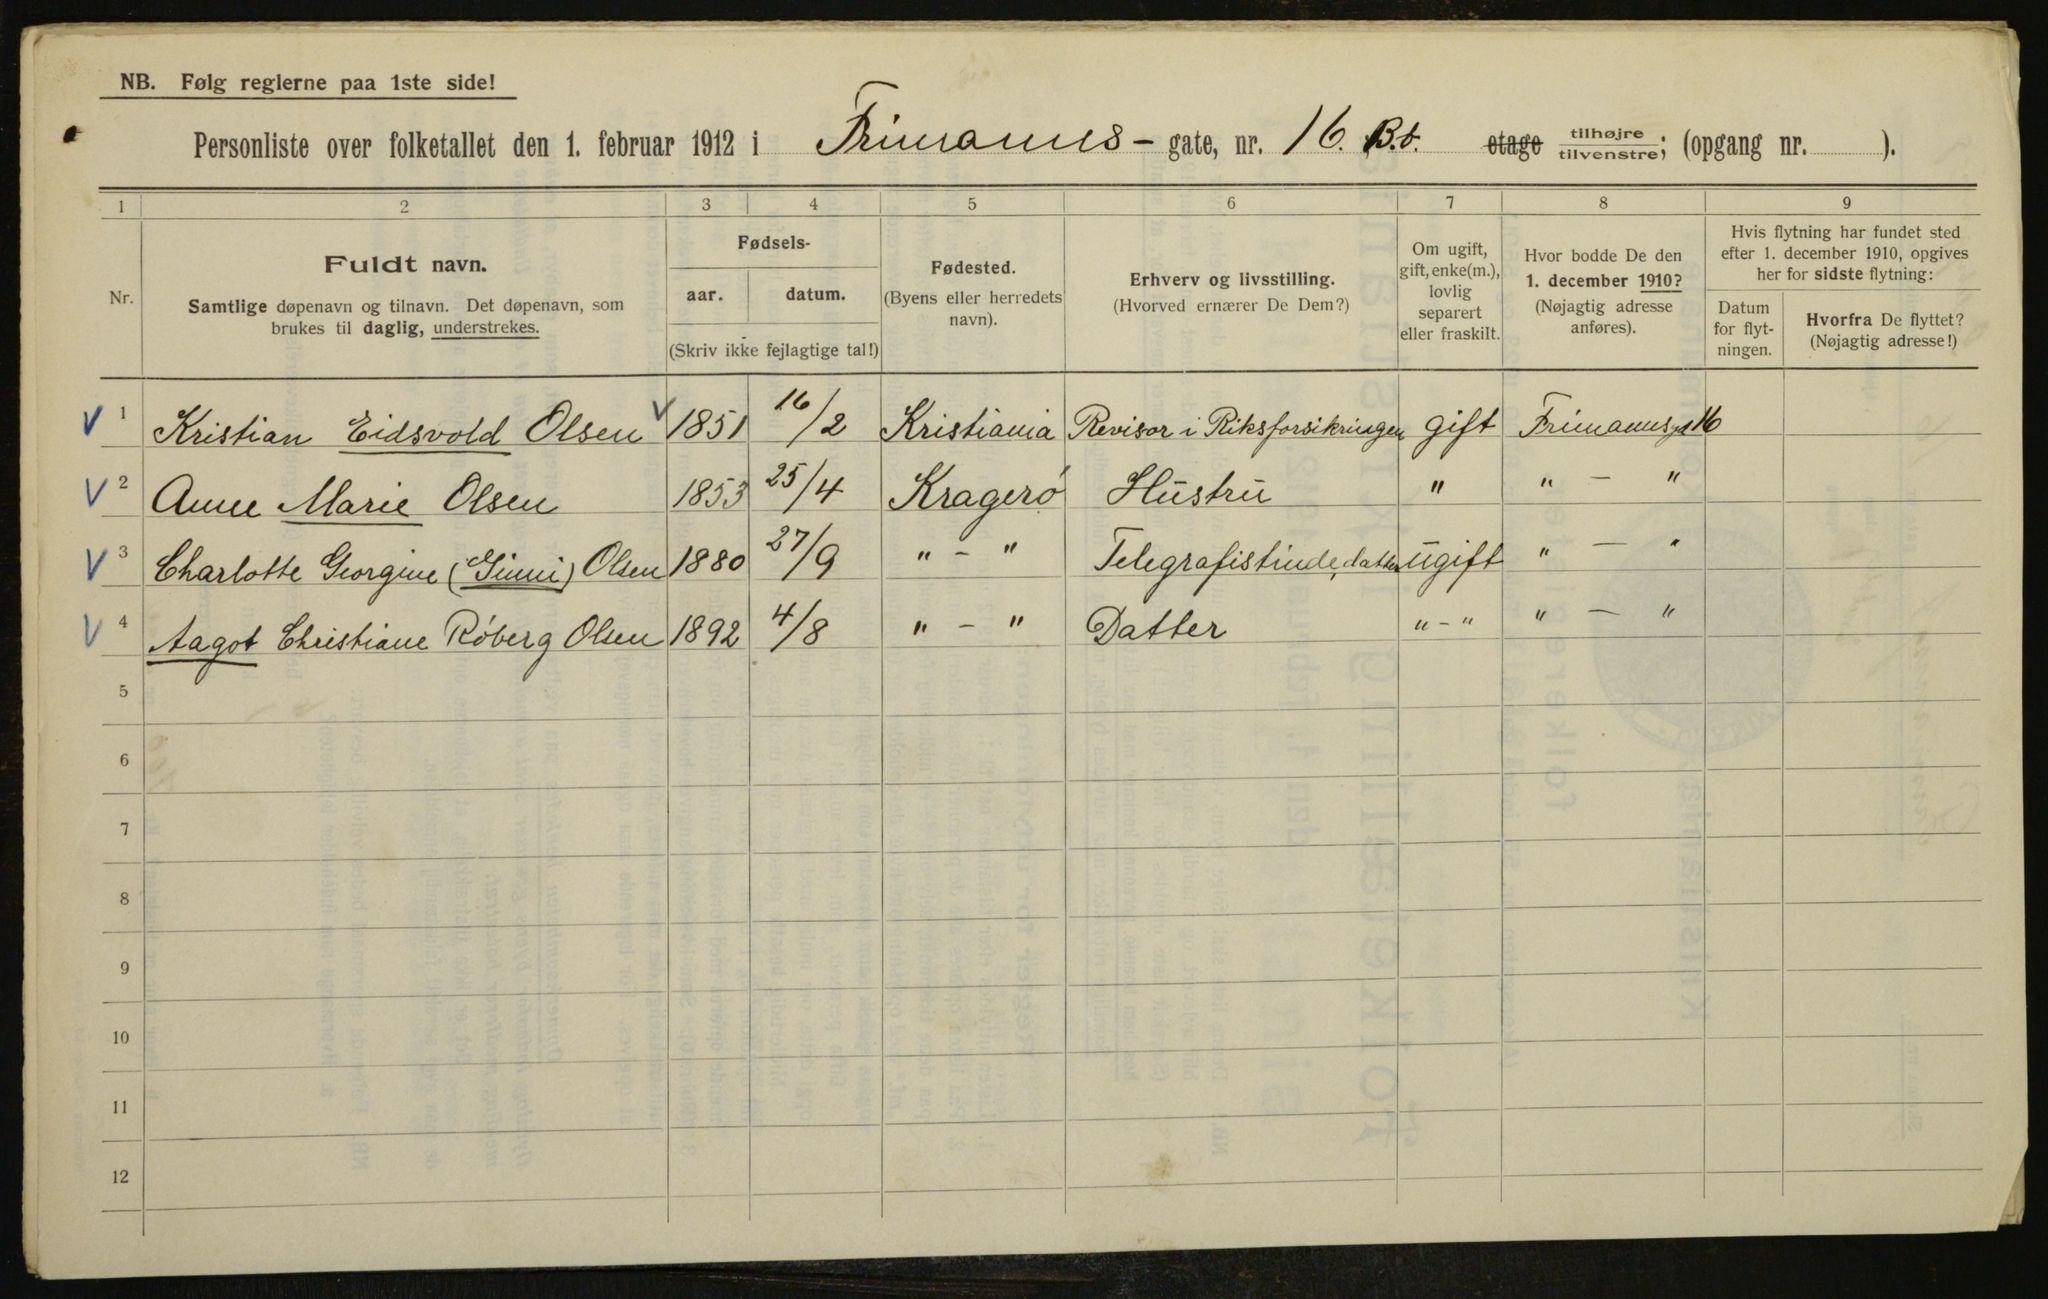 NB. Følg reglerne paa 1ste side!
Personliste over folketallet den 1. februar 1912 i Frimanns- gate, nr. 16. B.b. etage tilhøjre/tilvenstre; (opgang nr. ).
1 2 3 4 5 6 7 8 9
Nr.
Fuldt navn.
Samtlige døpenavn og tilnavn. Det døpenavn, som
brukes til daglig, understrekes.
Fødsels-
aar. datum.
(Skriv ikke fejlagtige tal!)
Fødested.
(Byens eller herredets
navn).
Erhverv og livsstilling.
(Hvorved ernærer De Dem?)
Om ugift,
gift, enke(m.),
lovlig
separert
eller fraskilt.
Hvor bodde De den
1. december 1910?
(Nøjagtig adresse
anføres).
Hvis flytning har fundet sted
efter 1. december 1910, opgives
her for sidste flytning:
Datum
for flyt-
ningen.
Hvorfra De flyttet?
(Nøjagtig adresse!)
V 1 Kristian Eidsvold Olsen V 1851 16/2 Kristiania Revisor i Riksforsikringen gift Frimannsgt 16
V 2 Anne Marie Olsen 1853 25/4 Kragerø Hustru " " — "
V 3 Charlotte Georgine (Ginni) Olsen 1880 27/9 " - " Telegrafistinde, datter ugift " — "
V 4 Aagot Christiane Røberg Olsen 1892 4/8 " - " Datter " - " " — "
5
6
7
8
9
10
11
12